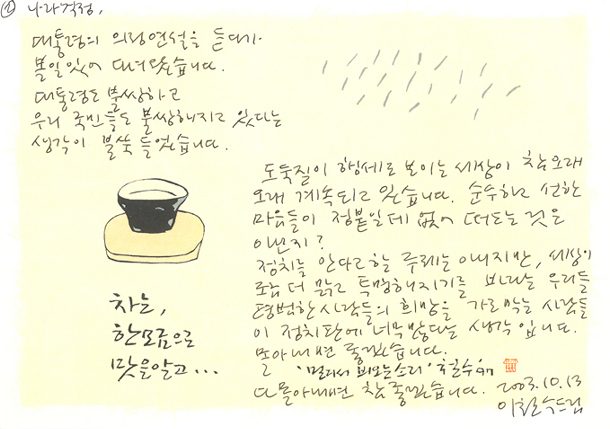 ① 나라걱정,
대통령의 의정연설을 듣다가
볼일있어 다녀왔습니다.
대통령도 불쌍하고
우리 국민들도 불쌍해지고 있다는
생각이 불쑥 들었습니다.
도둑질이 행세로 보이는 세상이 참 오래
오래 계속되고 있습니다. 순수하고 선한
마음들이 정붙일데 없어 떠도는 것은
아닌지?
정치를 안다고할 주제는 아니지만, 세상이
좀 더 맑고 투명해지기를 바라는 우리들
평범한 사람들의 희망을 가로막는 사람들
이 정치판에 너무많다는 생각입니다.
몰아내면 좋겠습니다.
'멀리서 비오는소리' 97
다 몰아내면 참 좋겠습니다. 2003.10.13
이철수드림
차는,
한모금으로
맛을알고...